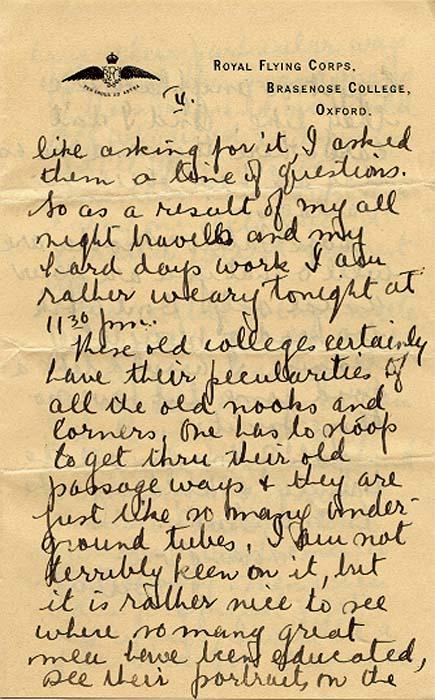 ROYAL FLYING CORPS,
BRASENOSE COLLEGE,
OXFORD.
PER ARDUA AD ASTRA
like asking for it, I asked
them a line of questions.
So as a result of my all
night travells and my
hard days work I am
rather weary tonight at
11 30 pm.
These old colleges certainly
have their pecularities of
all the old nooks and
corners, one has to stoop
to get thru their old
passage ways & they are
just like so many under-
ground tubes, I am not
terribly keen on it, but
it is rather nice to see
where so many great
men have been educated,
see their portraits on the